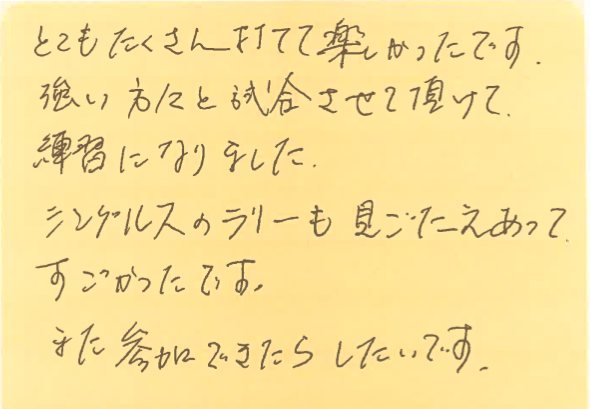 とてもたくさん打てて楽しかったです.
強い方々と試合させて頂けて.
練習になりました.
シングルスのラリーも見ごたえあって.
すごかったです。
また参加できたらしたいです.